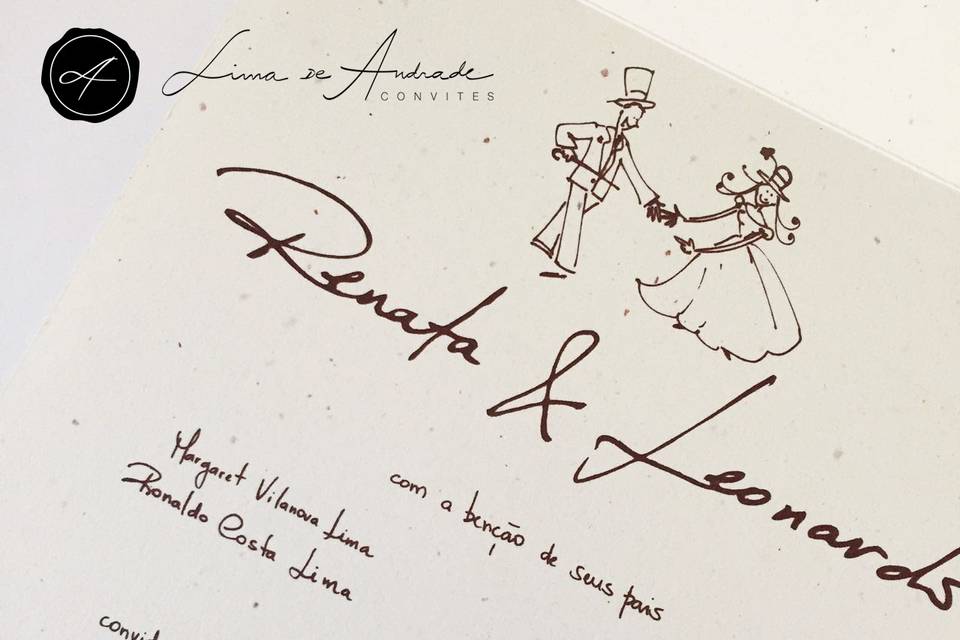 A
Lima de Andrade
CONVITES
Renata & Leonardo
com a benção de seus pais
Margaret Vilanova Lima
Ronaldo Costa Lima